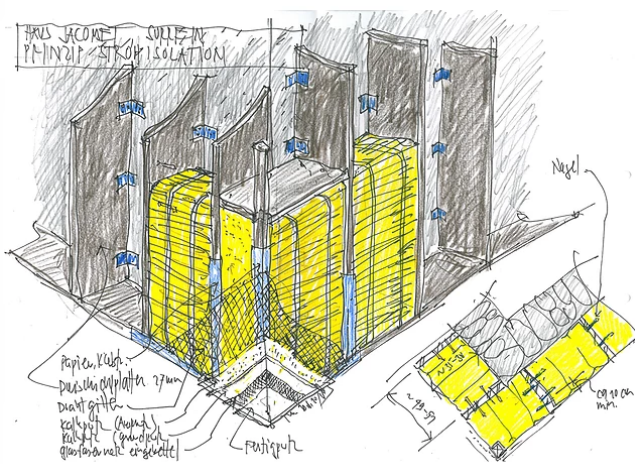 HAUS JACOMET SURREIN
PRINZIP STROHISOLATION
Nagel
Dreischichtplatten 27mm
Drahtgitter
Kalkputz
Kalkputz (grundputz)
glasfasernetz eingebettet
Fertigputz
ca 10 cm
min.